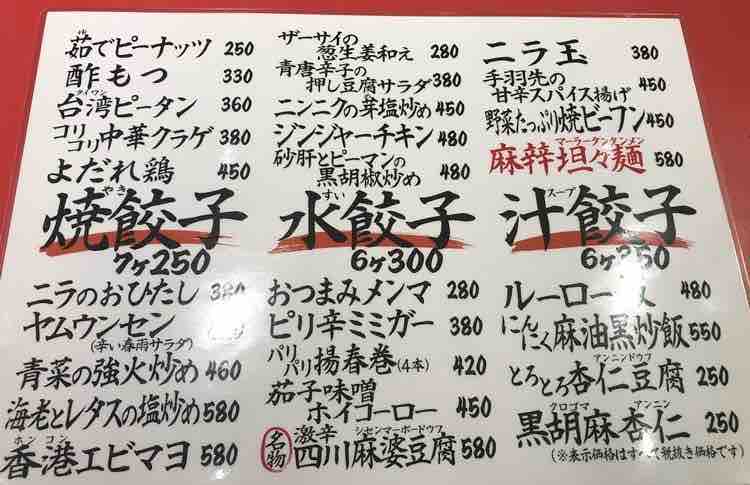 茹でピーナッツ 250
酢もつ 330
タイワン
台湾ピータン 360
コリコリ中華クラゲ 380
よだれ鶏 450
ザーサイの
葱生姜和え 280
青唐辛子の
押し豆腐サラダ 380
ニンニクの芽塩炒め 450
ジンジャーチキン 480
砂肝とピーマンの
黒胡椒炒め 480
ニラ玉 380
手羽先の
甘辛スパイス揚げ 450
野菜たっぷり焼ビーフン 450
マーラータンタンメン
麻辣坦々麺 580
やき
焼餃子
7ヶ250
すい
水餃子
6ヶ300
スープ
汁餃子
6ヶ350
ニラのおひたし 380
ヤムウンセン
(辛い春雨サラダ)
青菜の強火炒め 460
海老とレタスの塩炒め 580
ホンコン
香港エビマヨ 580
おつまみメンマ 280
ピリ辛ミミガー 380
パリパリ揚春巻(4本) 420
茄子味噌
ホイコーロー 450
名物
激辛 シセンマーボードウフ
四川麻婆豆腐 580
ルーロー 480
にんにく麻油黒炒飯 550
アンニンドウフ
とろとろ杏仁豆腐 250
クロゴマ アンニン
黒胡麻杏仁 250
(※表示価格はすべて税抜き価格です)